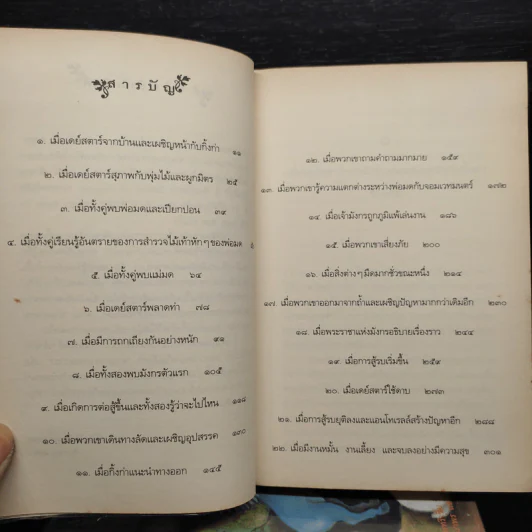 สารบัญ
๑. เมื่อเดย์สตาร์จากบ้านและเผชิญหน้ากับกิ้งก่า ๑๑
๒. เมื่อเดย์สตาร์สุภาพกับพุ่มไม้และผูกมิตร ๒๕
๓. เมื่อทั้งคู่พบพ่อมดและเปียกปอน ๓๙
๔. เมื่อทั้งคู่เรียนรู้อันตรายของการสำรวจไม้เท้าหักๆ ของพ่อมด
๕. เมื่อทั้งคู่พบแม่มด ๖๔
๖. เมื่อเดย์สตาร์พลาดท่า ๗๘
๗. เมื่อมีการถกเถียงกันอย่างหนัก ๙๑
๘. เมื่อทั้งสองพบมังกรตัวแรก ๑๐๕
๙. เมื่อเกิดการต่อสู้ขึ้นและทั้งสองรู้ว่าจะไปไหน ๑๑๘
๑๐. เมื่อพวกเขาเดินทางลัดและเผชิญอุปสรรค ๑๓๐
๑๑. เมื่อกิ้งก่าแนะนำทางออก ๑๔๕
๑๒. เมื่อพวกเขาถามคำถามมากมาย ๑๕๙
๑๓. เมื่อพวกเขารู้ความแตกต่างระหว่างพ่อมดกับจอมเวทมนตร์ ๑๗๒
๑๔. เมื่อเจ้ามังกรถูกภูมิแพ้เล่นงาน ๑๘๖
๑๕. เมื่อพวกเขาเสี่ยงภัย ๒๐๐
๑๖. เมื่อสิ่งต่างๆ มืดมากชั่วขณะหนึ่ง ๒๑๔
๑๗. เมื่อพวกเขาออกมาจากถ้ำและเผชิญปัญหามากกว่าเดิมอีก ๒๓๐
๑๘. เมื่อพระราชาแห่งมังกรอธิบายเรื่องราว ๒๔๔
๑๙. เมื่อการสู้รบเริ่มขึ้น ๒๕๙
๒๐. เมื่อเดย์สตาร์ใช้ดาบ ๒๗๓
๒๑. เมื่อการสู้รบยุติลงและแอนโทเรลล์สร้างปัญหาอีก ๒๘๘
๒๒. เมื่อมีงานหมั้น งานเลี้ยง และจบลงอย่างมีความสุข ๓๐๑